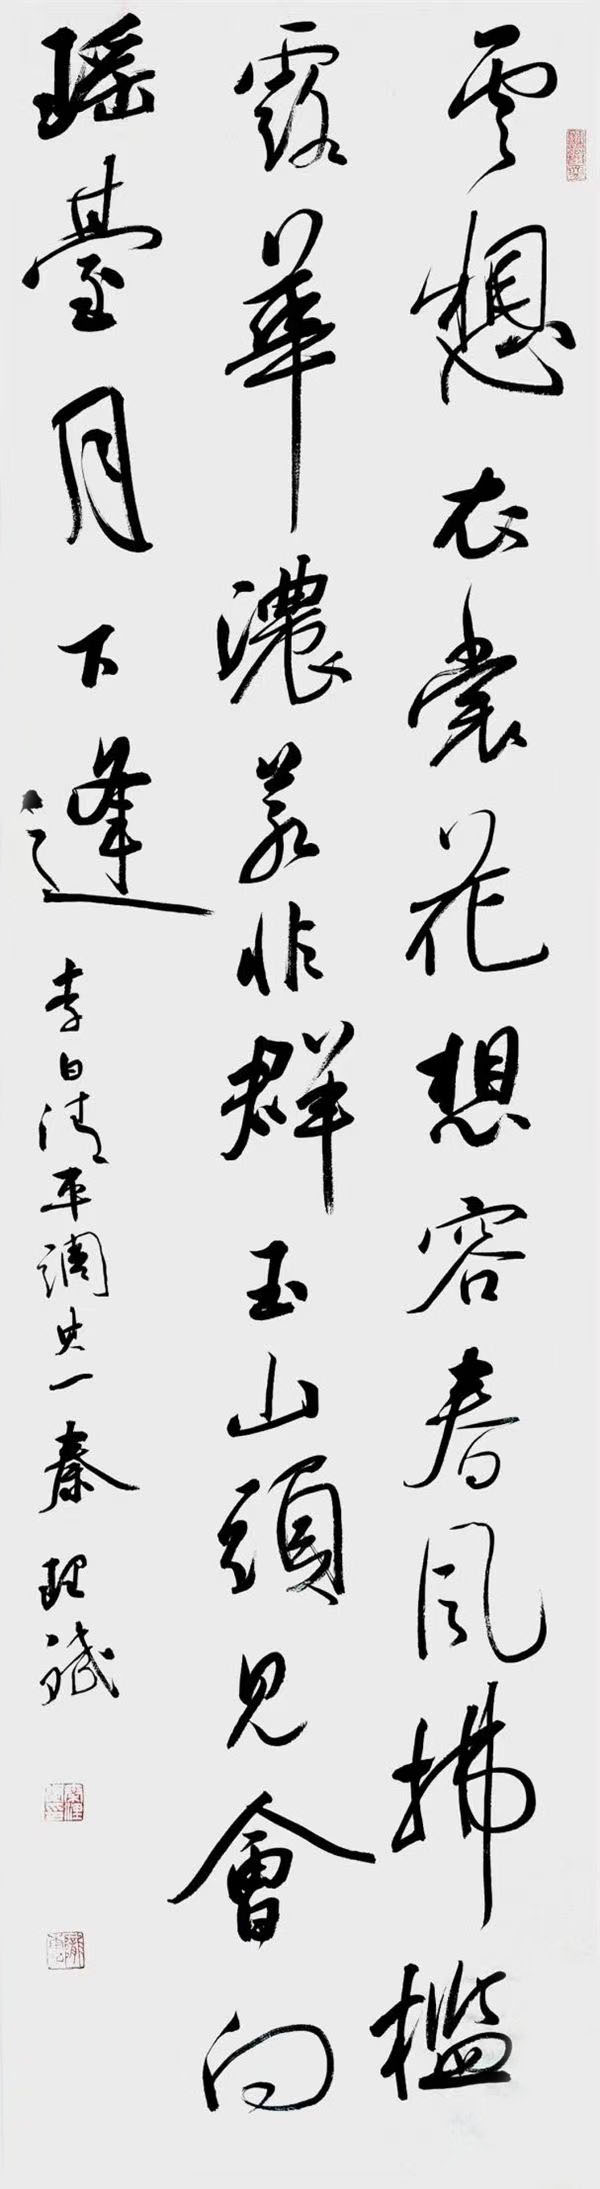 雲想衣裳花想容春風拂檻
露華濃若非群玉山頭見會向
瑤臺月下逢 李白清平調其一 秦理